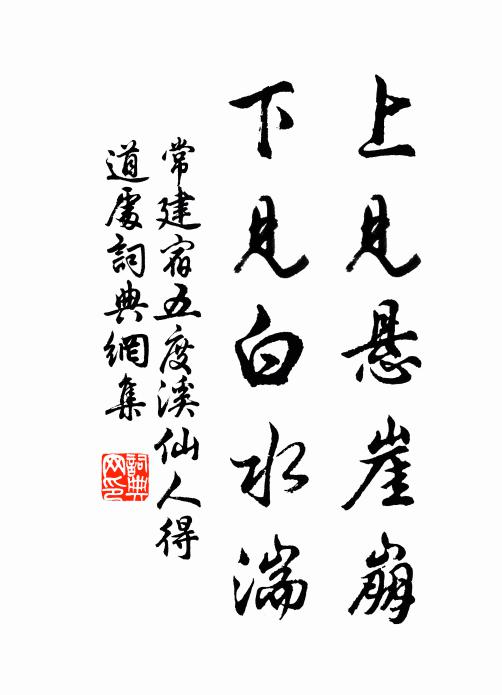 上見懸崖崩
下見白水湍
常建宿五度溪仙人得
道處詞典網集